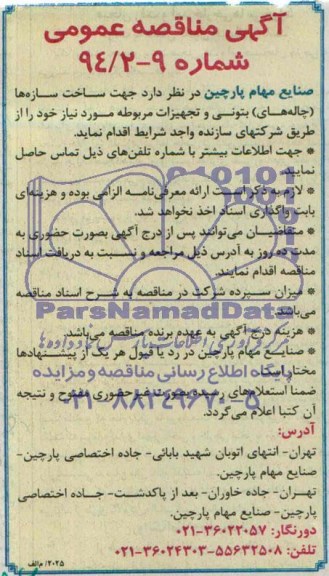 آگهی مناقصه عمومی
شماره ۹-۹۴/۲
صنایع مهام پارچین در نظر دارد جهت ساخت سازه‌ها
(چاله‌های) بتونی و تجهیزات مربوطه مورد نیاز خود را از
طریق شرکتهای سازنده واجد شرایط اقدام نماید.
* جهت اطلاعات بیشتر با شماره تلفن‌های ذیل تماس حاصل
نمایید.
* لازم به ذکر است ارائه معرفی‌نامه الزامی بوده و هزینه‌ای
بابت واگذاری اسناد اخذ نخواهد شد.
* متقاضیان می‌توانند پس از درج آگهی بصورت حضوری به
مدت ده روز به آدرس ذیل مراجعه و نسبت به دریافت اسناد
مناقصه اقدام نمایند.
* میزان سپرده شرکت در مناقصه به شرح اسناد مناقصه
می‌باشد.
ParsNamadData
* هزینه درج آگهی به عهده برنده مناقصه می‌باشد.
* صنایع مهام پارچین در رد یا قبول هر یک از پیشنهادها
مختار است.
پایگاه اطلاع رسانی مناقصه و مزایده
ضمنا استعلام‌های رسیده بصورت غیرحضوری مفتوح و نتیجه
۰۲۱-۸۸۳۴۹۶۷۰-۵
آن کتبا اعلام می‌گردد.
آدرس:
تهران- انتهای اتوبان شهید بابائی- جاده اختصاصی پارچین-
صنایع مهام پارچین.
تهران- جاده خاوران- بعد از پاکدشت- جاده اختصاصی
پارچین- صنایع مهام پارچین.
دورنگار: ۳۶۰۲۳۰۵۷-۰۲۱
تلفن: ۵۵۶۳۲۵۰۸-۳۶۰۲۴۳۰۳-۰۲۱
۲۰۲۵/م‌الف